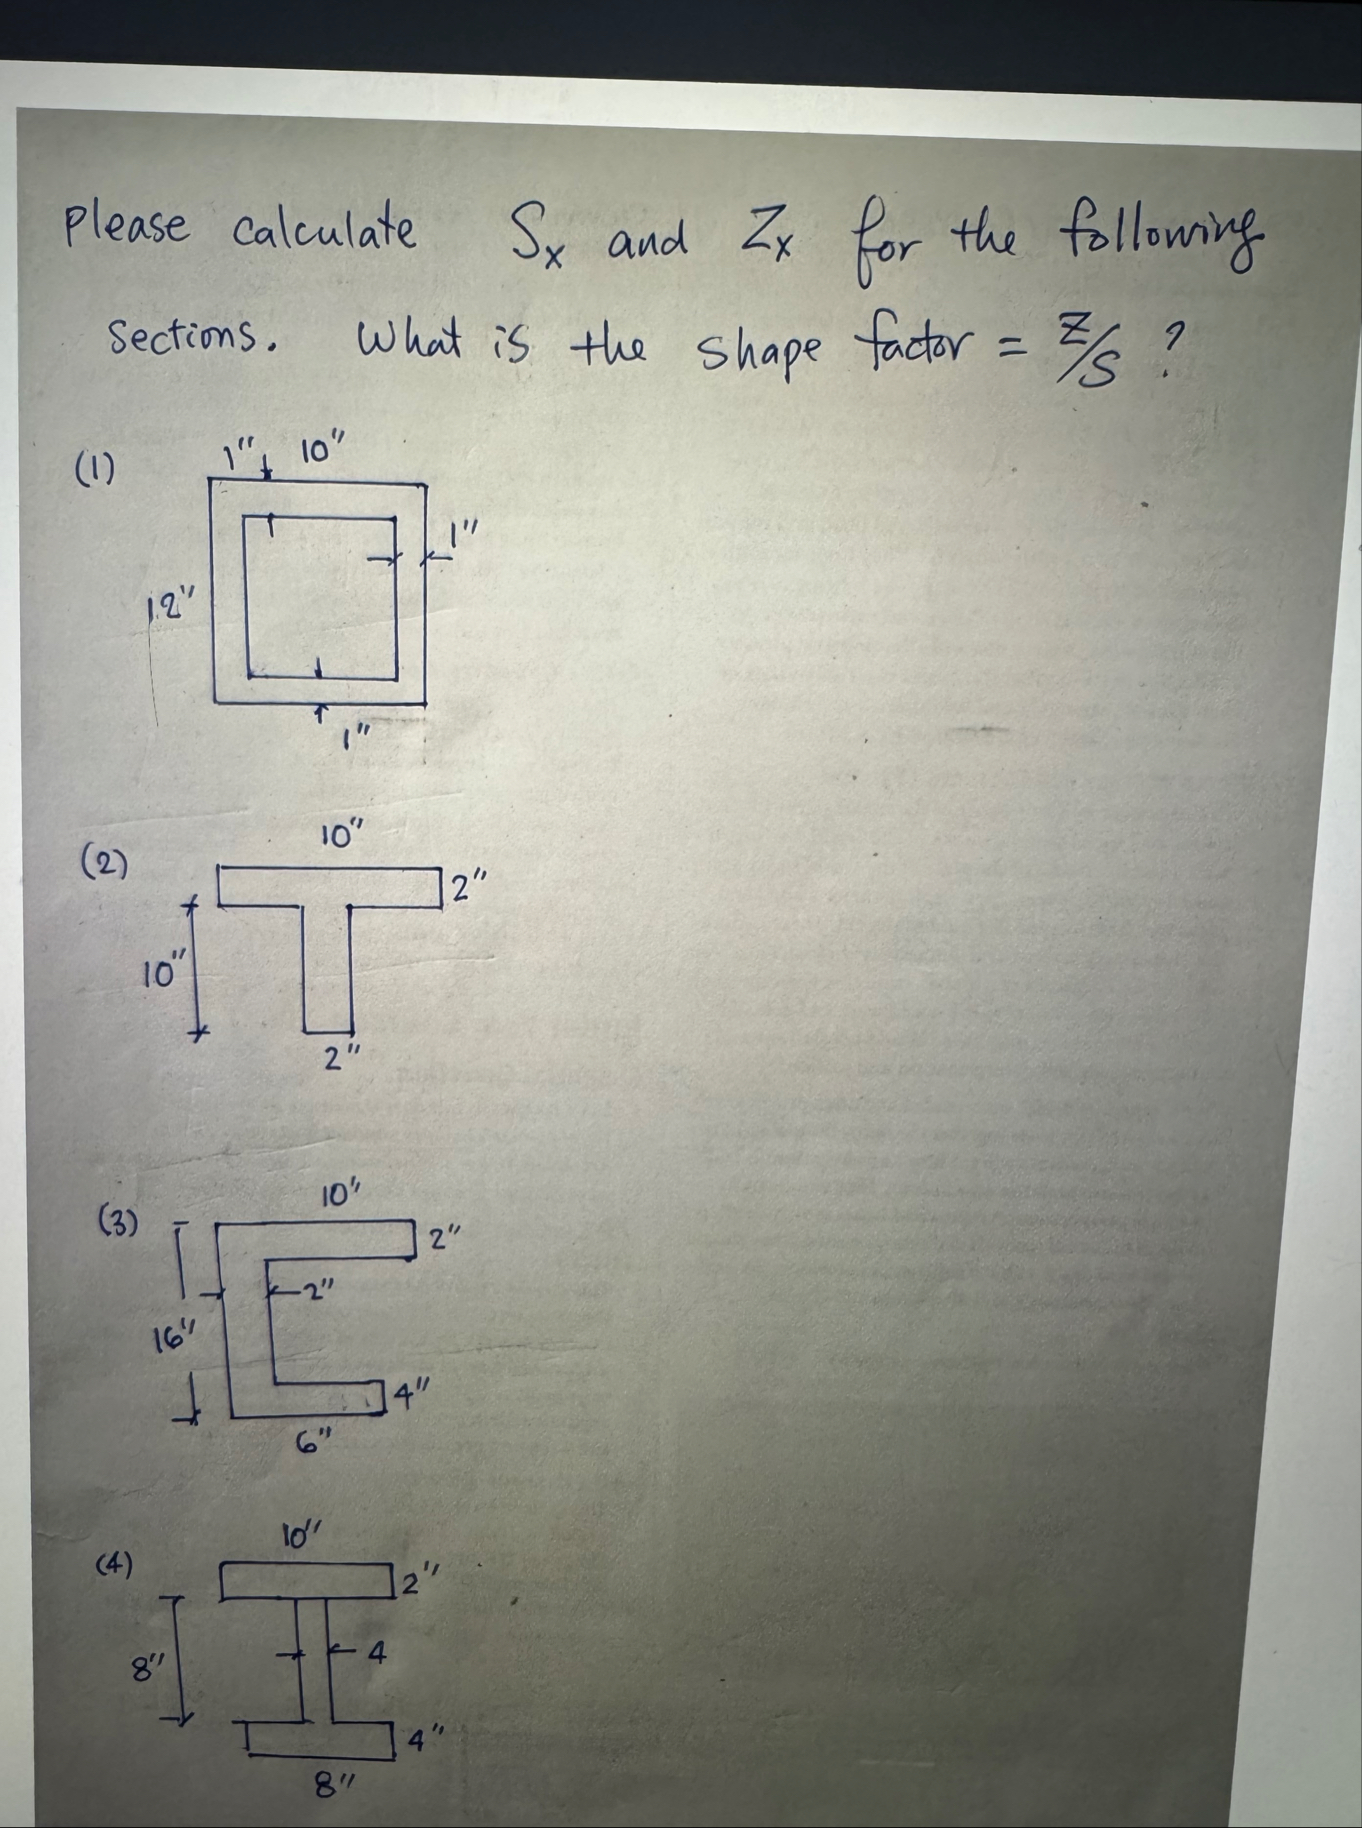 Please calculate Sx and Zx for the following
sections. What is the shape factor = Z/S ?
(1)
1" 10"
1"
12"
1"
(2)
10"
2"
10"
2"
(3)
10"
2"
2"
16"
4"
6"
(4)
10"
2"
4
8"
4"
8"